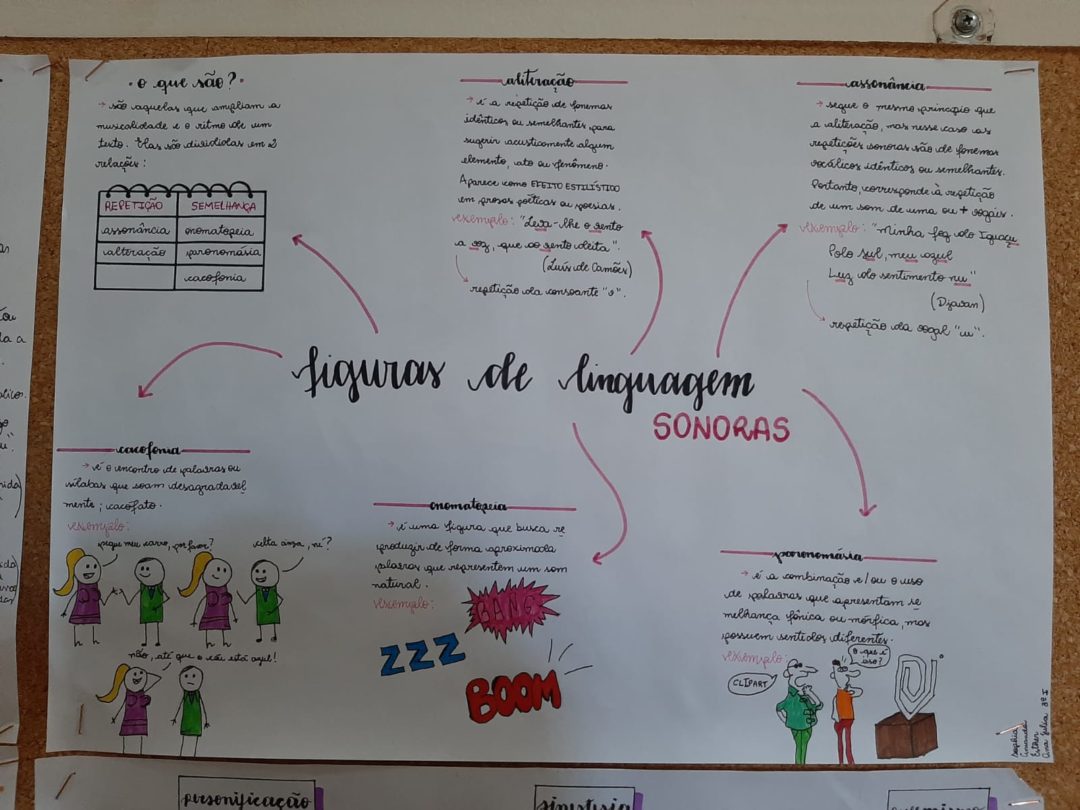 • o que são? •
→ são aquelas que ampliam a
musicalidade e o ritmo de um
texto. Elas são divididas em 2
relações:
REPETIÇÃO SEMELHANÇA
assonância onomatopeia
aliteração paronomásia
cacofonia
aliteração
→ é a repetição de fonemas
idênticos ou semelhantes para
sugerir acusticamente algum
elemento, ato ou fenômeno.
Aparece como EFEITO ESTILÍSTICO
em prosas poéticas ou poesias.
exemplo: "Leva-lhe o vento
a voz, que ao vento deita".
(Luís de Camões)
repetição da consoante "v".
assonância
→ segue o mesmo princípio que
a aliteração, mas nesse caso as
repetições sonoras são de fonemas
vocálicos idênticos ou semelhantes.
Portanto, corresponde à repetição
de um som de uma ou + vogais.
exemplo: "Minha foz do Iguaçu
Polo sul, meu azul
Luz do sentimento nu"
(Djavan)
repetição da vogal "u".
figuras de linguagem
SONORAS
cacofonia
→ é o encontro de palavras ou
sílabas que soam desagradavel-
mente; cacofato.
exemplo:
pegue meu carro, por favor?
não, até que o céu está azul!
onomatopeia
→ é uma figura que busca re
produzir de forma aproximada
palavras que representem um som
natural.
exemplo:
BANG
ZZZ
BOOM
paronomásia
→ é a combinação e/ou o uso
de palavras que apresentam se
melhança fônica ou mórfica, mas
possuem sentidos diferentes.
exemplo:
CLIPART
O que é
isso?
Sophia
Amanda
Esther
Ana Julia 3º I
personificação
sinestesia